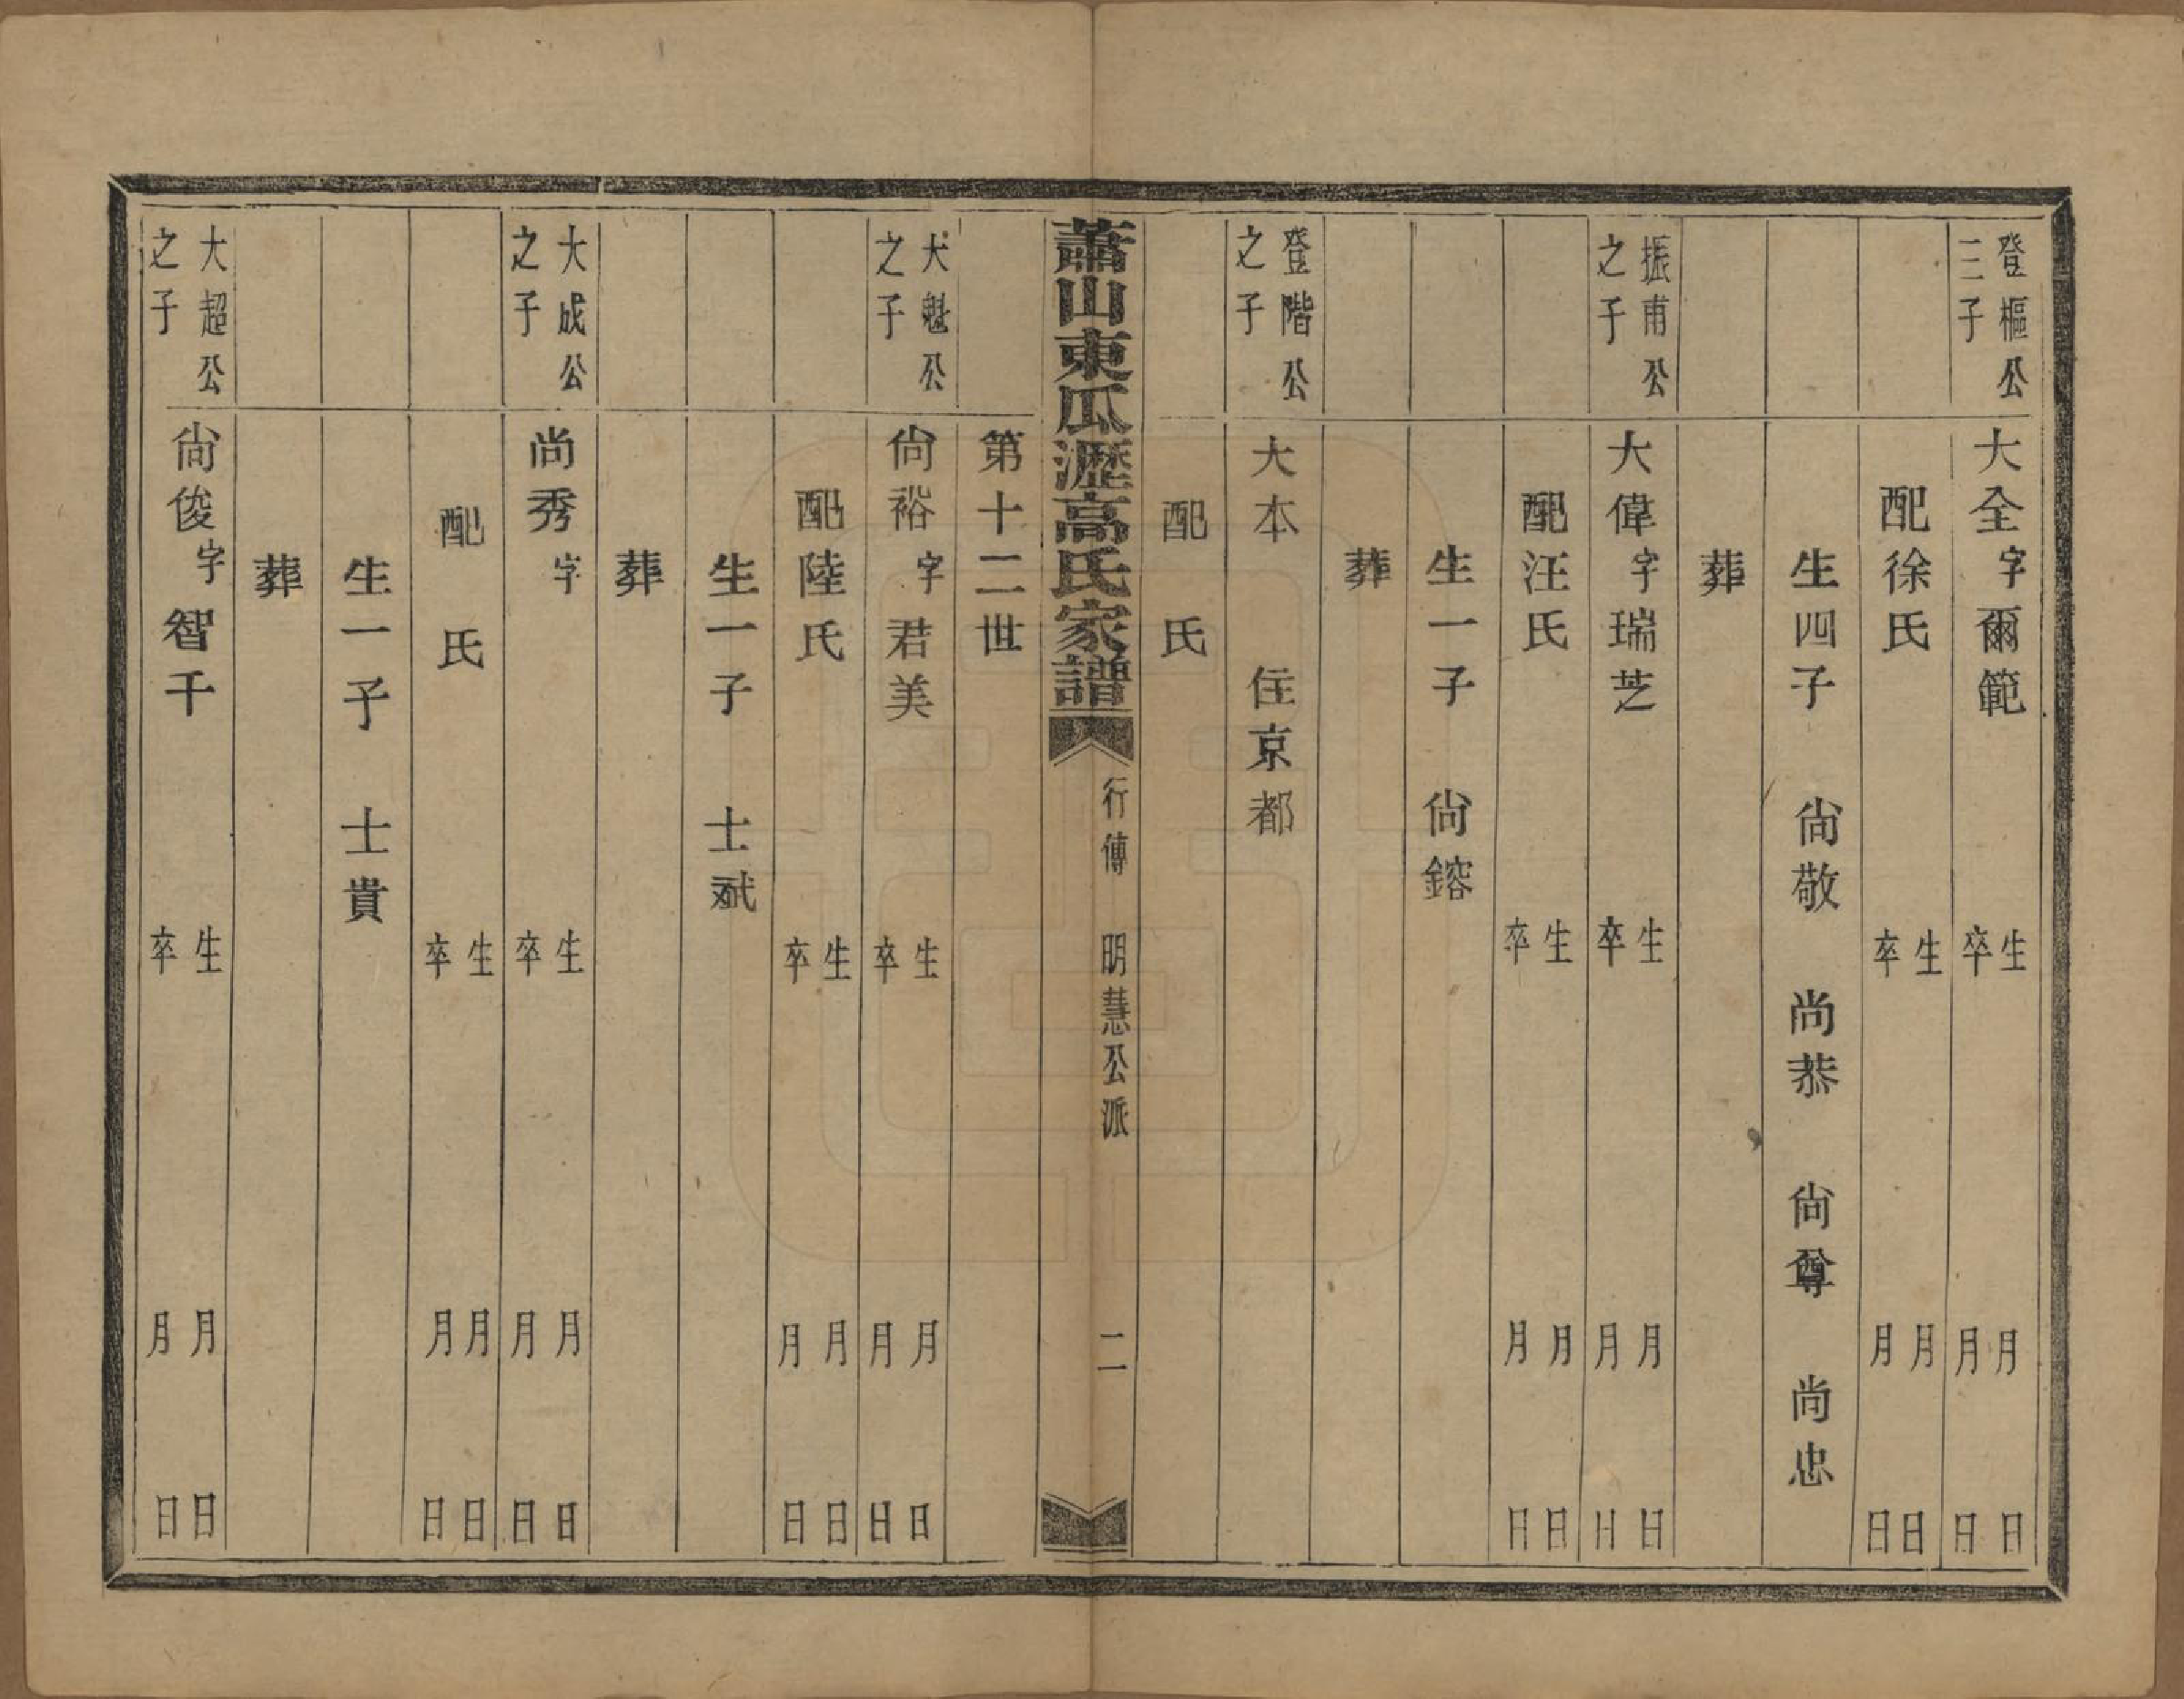 登樞公
三子
大全字爾範 生 月 日
卒 月 日
配徐氏 生 月 日
卒 月 日
生四子 尙敬 尙恭 尙尊 尙忠
葬
振甫公
之子
大偉字瑞芝 生 月 日
卒 月 日
配汪氏 生 月 日
卒 月 日
生一子 尙鎔
葬
登階公
之子
大本 住京都
配 氏
蕭山東瓜瀝高氏家譜 行傳 明慧公派 二
第十二世
大魁公
之子
尙裕字君美 生 月 日
卒 月 日
配陸氏 生 月 日
卒 月 日
生一子 士斌
葬
大成公
之子
尙秀字 生 月 日
卒 月 日
配 氏 生 月 日
卒 月 日
生一子 士貴
葬
大超公
之子
尙俊字智千 生 月 日
卒 月 日